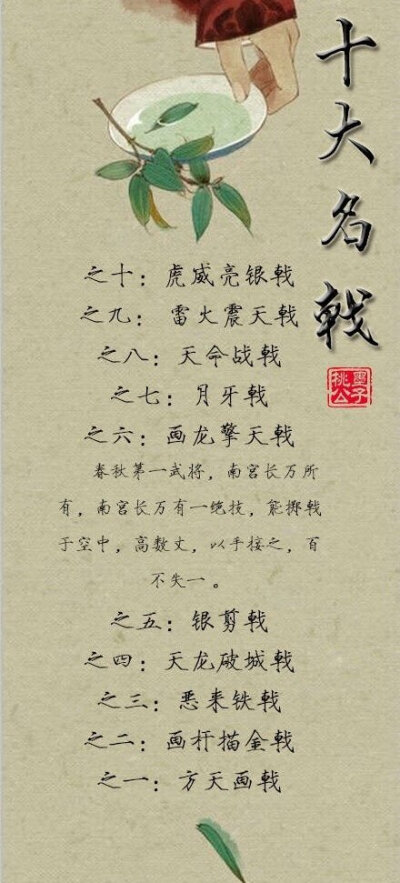 十大名戟
桃墨
公子
之十：虎威亮银戟
之九：雷火震天戟
之八：天命战戟
之七：月牙戟
之六：画龙擎天戟
春秋第一武将，南宫长万所
有，南宫长万有一绝技，能掷戟
于空中，高数丈，以手接之，百
不失一。
之五：银剪戟
之四：天龙破城戟
之三：恶来铁戟
之二：画杆描金戟
之一：方天画戟